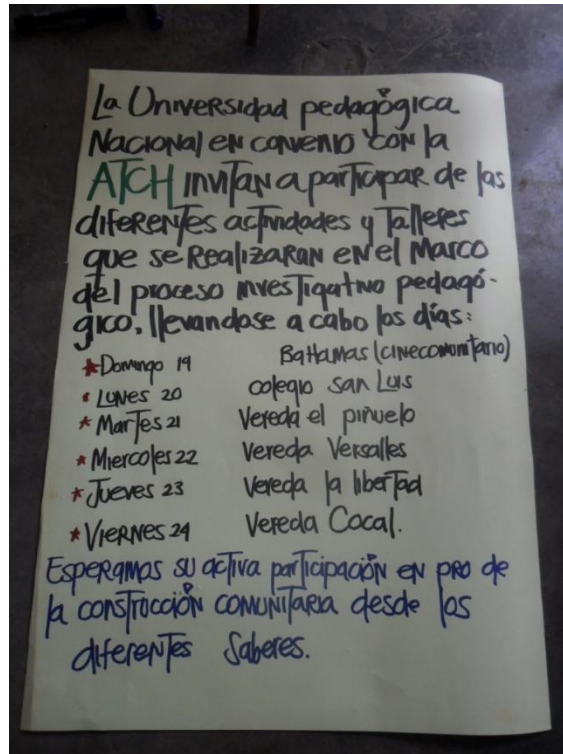 La Universidad pedagógica
Nacional en convenio con la
ATCH invitan a participar de las
diferentes actividades y Talleres
que se Realizaran en el Marco
del proceso investigativo pedagó-
gico, llevandose a cabo los días:
* Domingo 19 Bahamas (cinecomunitario)
* Lunes 20 colegio san Luis
* Martes 21 Vereda el piñuelo
* Miercoles 22 Vereda Versalles
* Jueves 23 Vereda la libertad
* Viernes 24 Vereda Cocal.
Esperamos su activa participación en pro de
la construcción comunitaria desde los
diferentes Saberes.